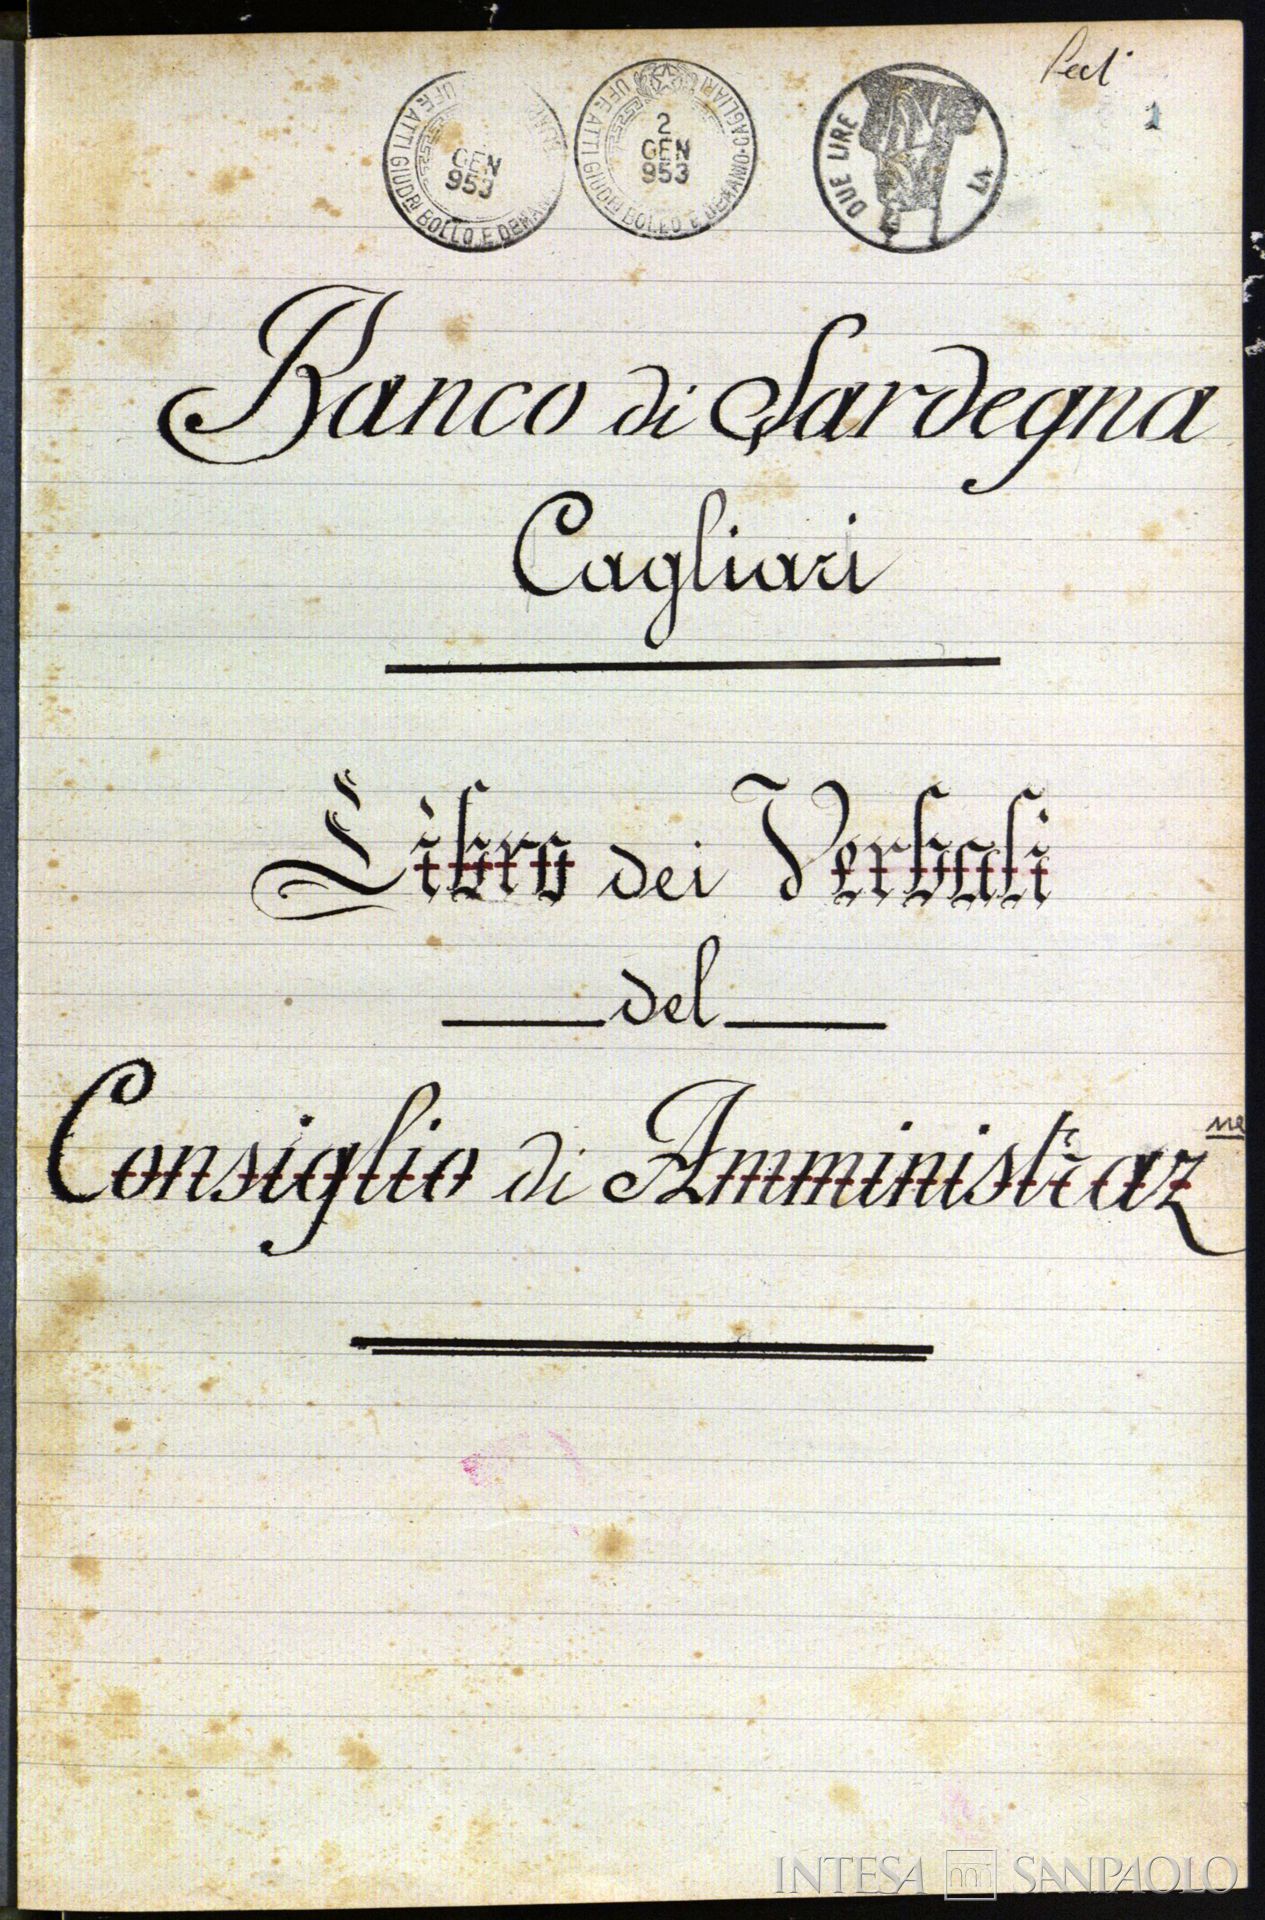 1
UFF. ATTI GIUDRI BOLLO E DEMAN
GEN
953
UFF. ATTI GIUDRI BOLLO E DEMANIO-CAGLIARI
2
GEN
953
DUE LIRE
Banco di Sardegna
Cagliari
Libro dei Verbali
del
Consiglio di Amministraz ne
INTESA SANPAOLO